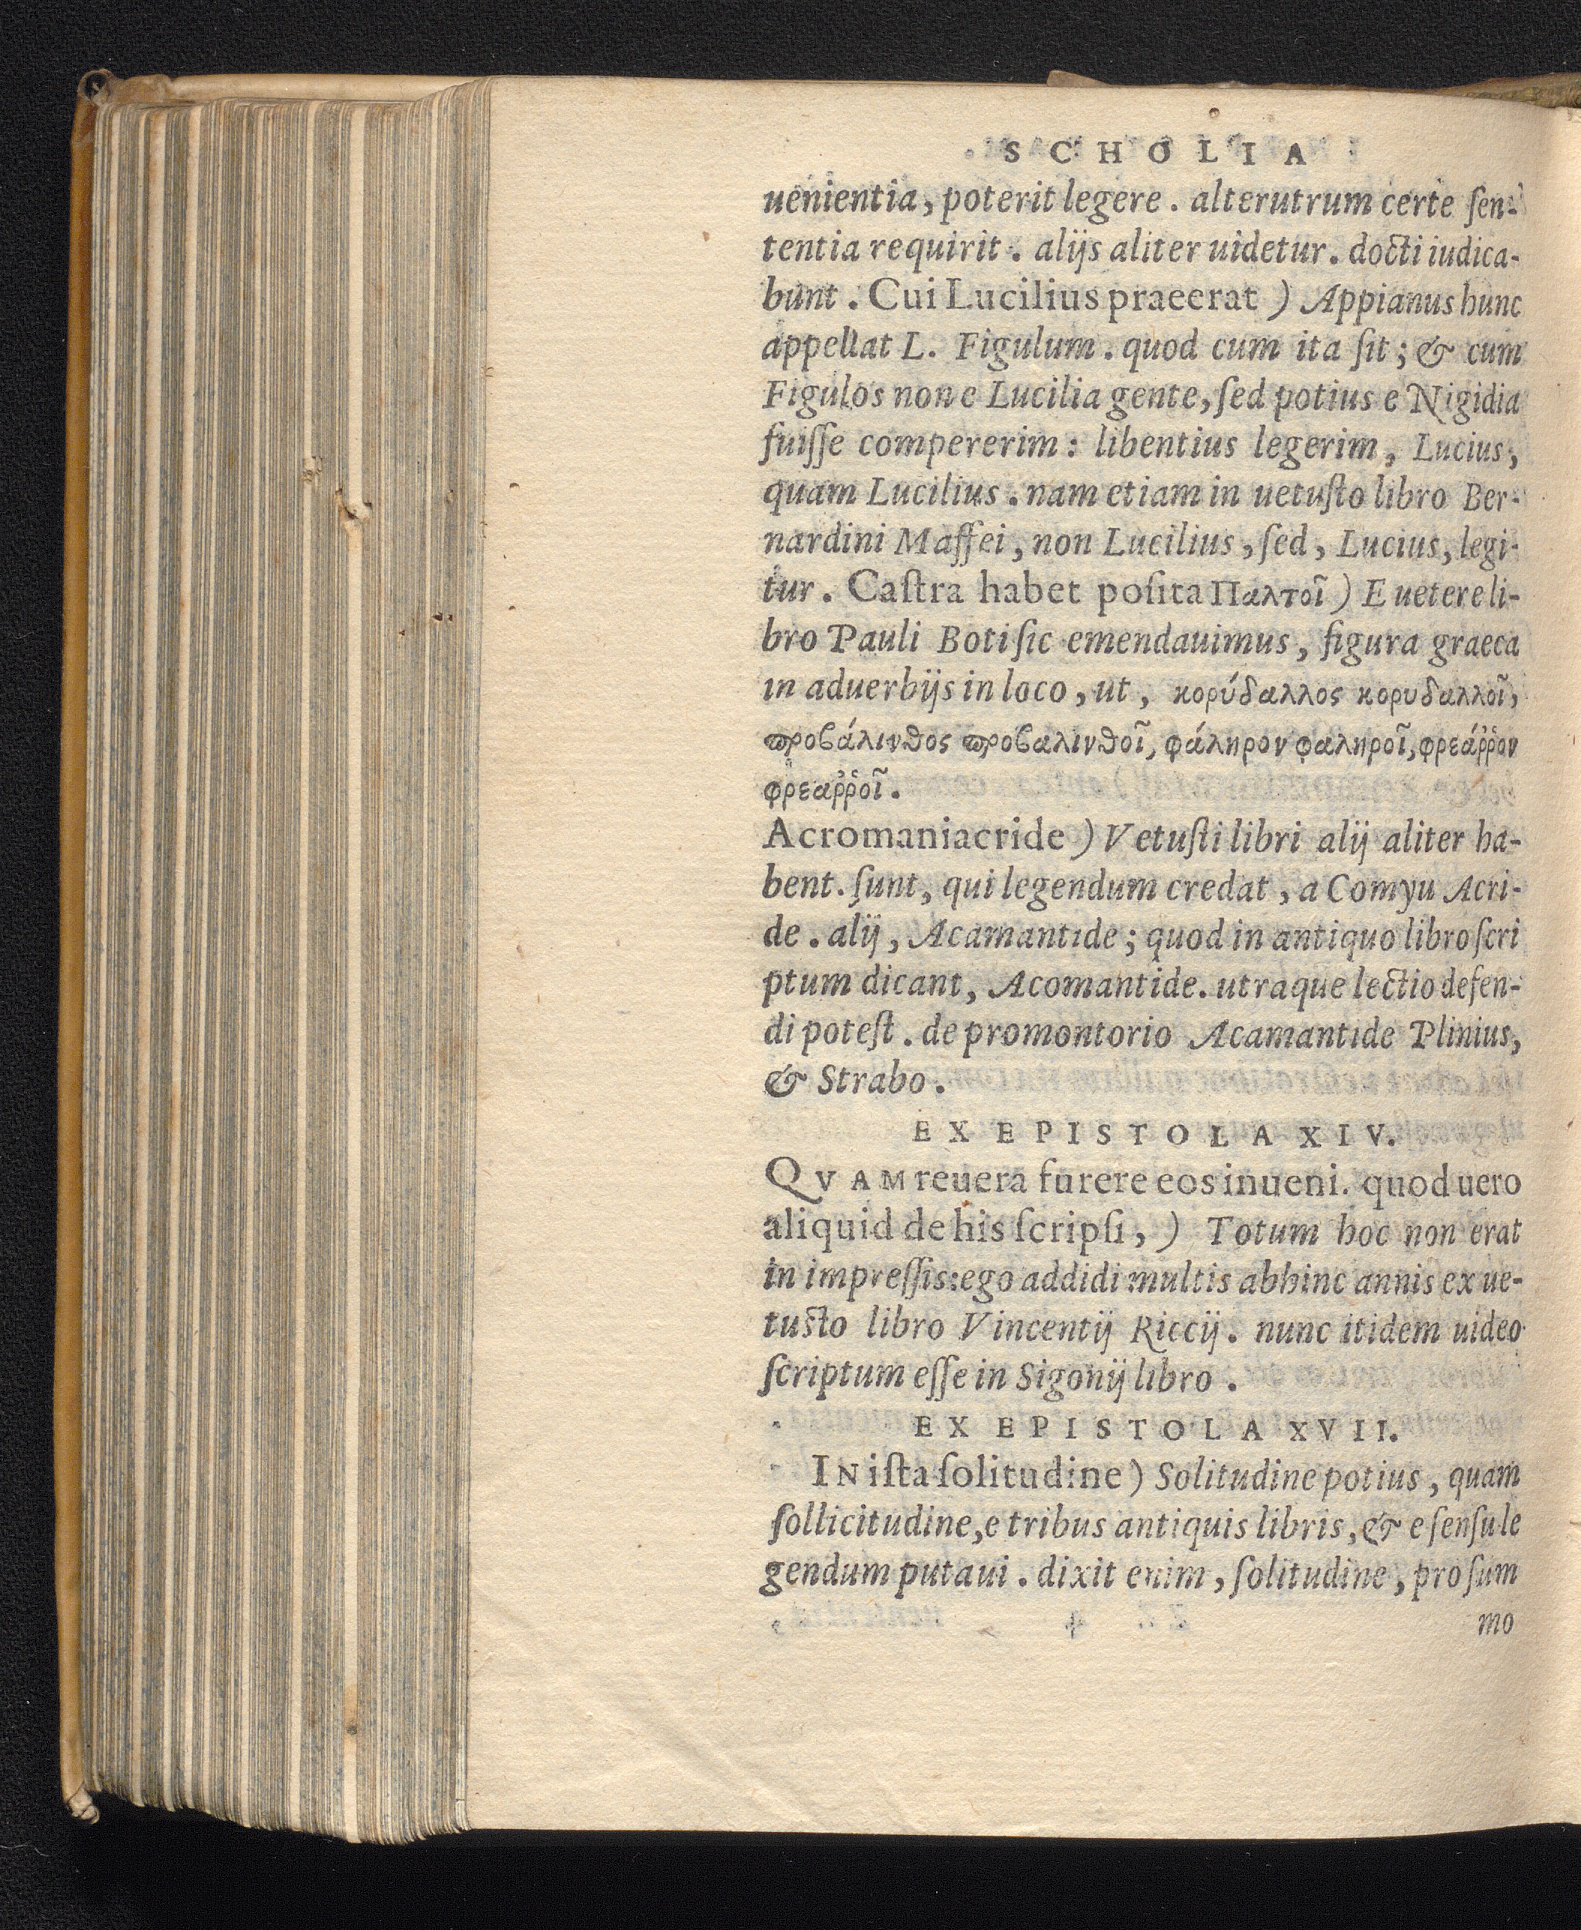 SCHOLIA
uenientia, poterit legere. alterutrum certe ſen-
tentia requirit. alijs aliter uidetur. docti iudica-
bunt. Cui Lucilius praeerat) Appianus hunc
appellat L. Figulum. quod cum ita ſit; & cum
Figulos non e Lucilia gente, ſed potius e Nigidia
fuiſſe compererim: libentius legerim, Lucius,
quam Lucilius. nam etiam in uetuſto libro Ber-
nardini Maffei, non Lucilius, ſed, Lucius, legi-
tur. Caſtra habet poſita Παλτοῖ) E uetere li-
bro Pauli Boti ſic emendauimus, figura graeca
in aduerbijs in loco, ut, κορύδαλλος κορυδαλλοῖ,
ϖροβάλινθος ϖροβαλινθοῖ, φάληρον φαληροῖ, φρεάῤῥον
φρεαῤῥοῖ.
Acromaniacride) Vetuſti libri alij aliter ha-
bent. ſunt, qui legendum credat, a Comyu Acri-
de. alij, Acamantide; quod in antiquo libro ſcri
ptum dicant, Acomantide. utraque lectio defen-
di poteſt. de promontorio Acamantide Plinius,
& Strabo.
EX EPISTOLA XIV.
QVAM reuera furere eos inueni. quod uero
aliquid de his ſcripſi,) Totum hoc non erat
in impreſſis: ego addidi multis abhinc annis ex ue-
tuſto libro Vincentij Riccij. nunc itidem uideo
ſcriptum eſſe in Sigonij libro.
EX EPISTOLA XVII.
IN iſta ſolitudine) Solitudine potius, quam
ſollicitudine, e tribus antiquis libris, & e ſenſu le
gendum putaui. dixit enim, ſolitudine, pro ſum
mo